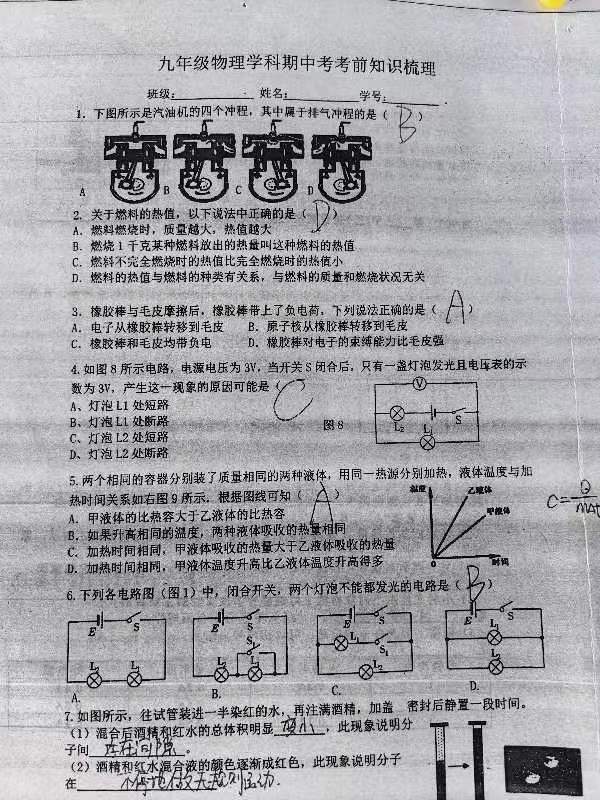 九年级物理学科期中考考前知识梳理
班级： 姓名： 学号：
1. 下图所示是汽油机的四个冲程，其中属于排气冲程的是（ B ）
A B C D
2. 关于燃料的热值，以下说法中正确的是（ D ）
A. 燃料燃烧时，质量越大，热值越大
B. 燃烧1千克某种燃料放出的热量叫这种燃料的热值
C. 燃料不完全燃烧时的热值比完全燃烧时的热值小
D. 燃料的热值与燃料的种类有关系，与燃料的质量和燃烧状况无关
3. 橡胶棒与毛皮摩擦后，橡胶棒带上了负电荷，下列说法正确的是（ A ）
A. 电子从橡胶棒转移到毛皮 B. 原子核从橡胶棒转移到毛皮
C. 橡胶棒和毛皮均带负电 D. 橡胶棒对电子的束缚能力比毛皮强
4. 如图8所示电路，电源电压为3V，当开关S闭合后，只有一盏灯泡发光且电压表的示
数为3V，产生这一现象的原因可能是（ C
A、灯泡L1处短路
B、灯泡L1处断路
C、灯泡L2处短路
D、灯泡L2处断路
图8
V
L₂ S
L₁
5. 两个相同的容器分别装了质量相同的两种液体，用同一热源分别加热，液体温度与加
热时间关系如右图9所示，根据图线可知（ A ）
A. 甲液体的比热容大于乙液体的比热容
B. 如果升高相同的温度，两种液体吸收的热量相同
C. 加热时间相同，甲液体吸收的热量大于乙液体吸收的热量
D. 加热时间相同，甲液体温度升高比乙液体温度升高得多
温度 乙液体
甲液体
0 时间
C=Q/mΔt
6. 下列各电路图（图1）中，闭合开关，两个灯泡不能都发光的电路是（ B ）
E S E S E S E S
S₁ L₁ S₁ L₁
L₁ L₂ L₂ L₁ L₂ L₂
A. B. C. D.
7. 如图所示，往试管装进一半染红的水，再注满酒精，加盖 密封后静置一段时间。
（1）混合后酒精和红水的总体积明显 变小 ，此现象说明分
子间 存在间隙 。
（2）酒精和红水混合液的颜色逐渐成红色，此现象说明分子
在 不停地做无规则运动.